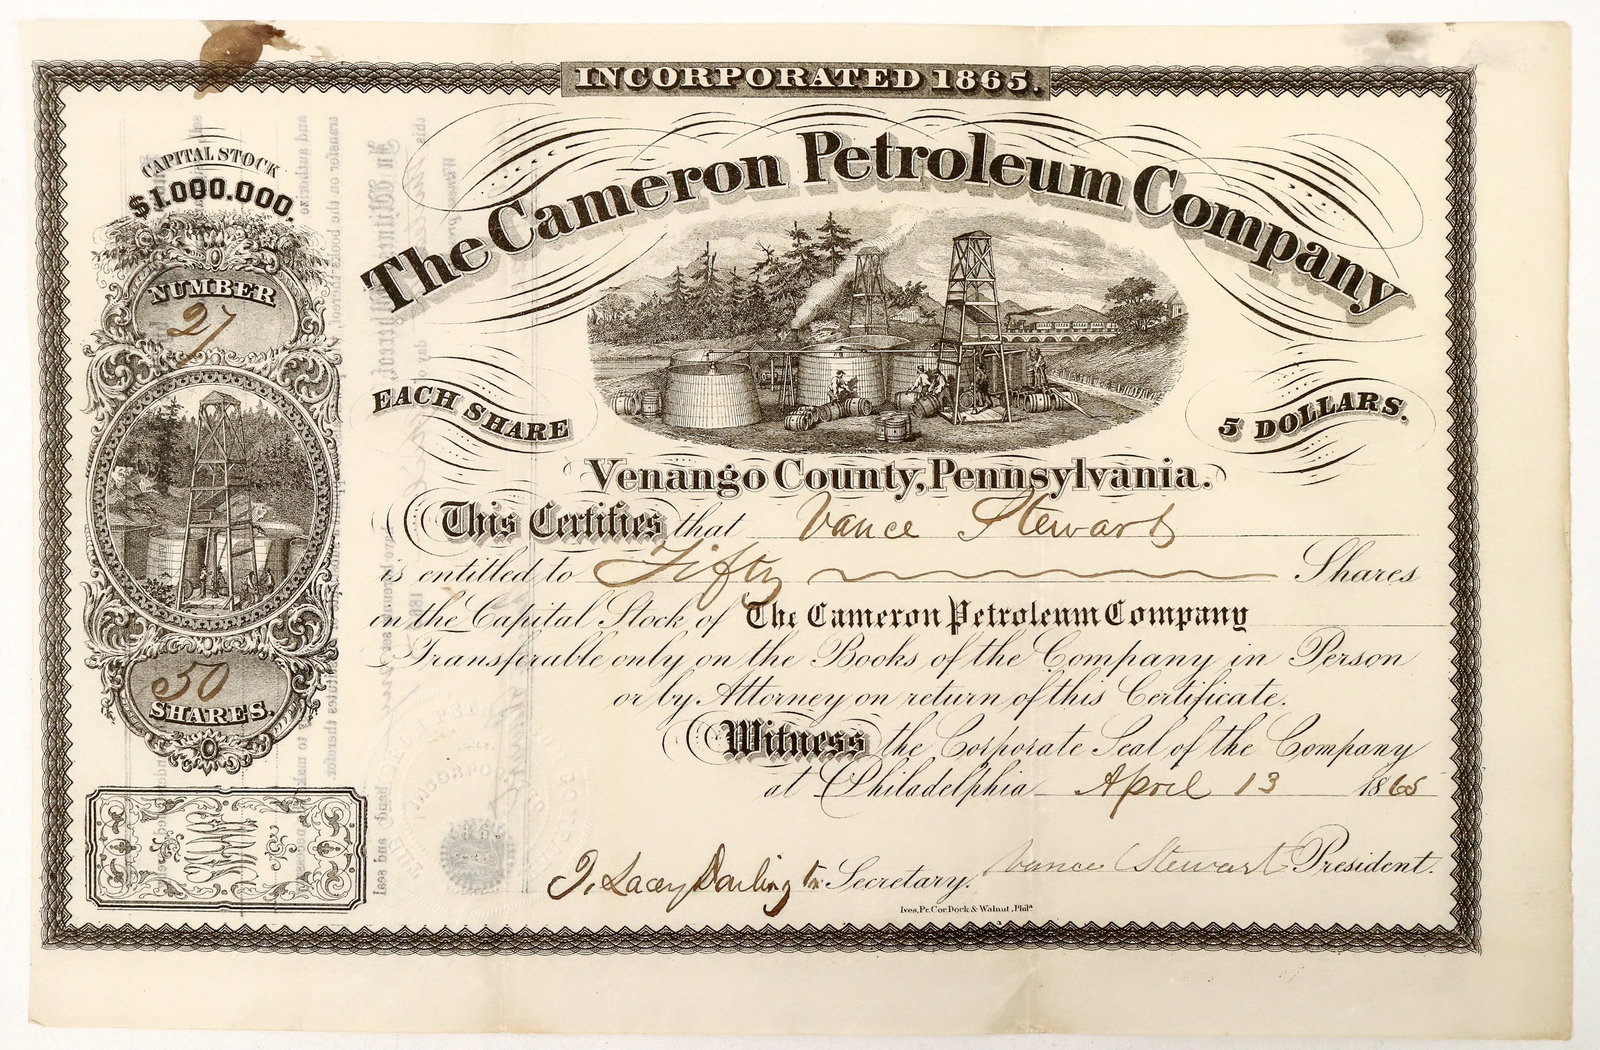 INCORPORATED 1865.
CAPITAL STOCK
$1.000.000.
The Cameron Petroleum Company
NUMBER
27
EACH SHARE
5 DOLLARS.
Venango County, Pennsylvania.
This Certifies that Vance Stewart
is entitled to Fifty Shares
in the Capital Stock of The Cameron Petroleum Company
Transferable only on the Books of the Company in Person
or by Attorney on return of this Certificate.
50
SHARES.
Witness the Corporate Seal of the Company
at Philadelphia April 13 1865
J. Lacey Darlington Secretary. Vance Stewart President.
Ives, Pr. Cor. Dock & Walnut, Phila